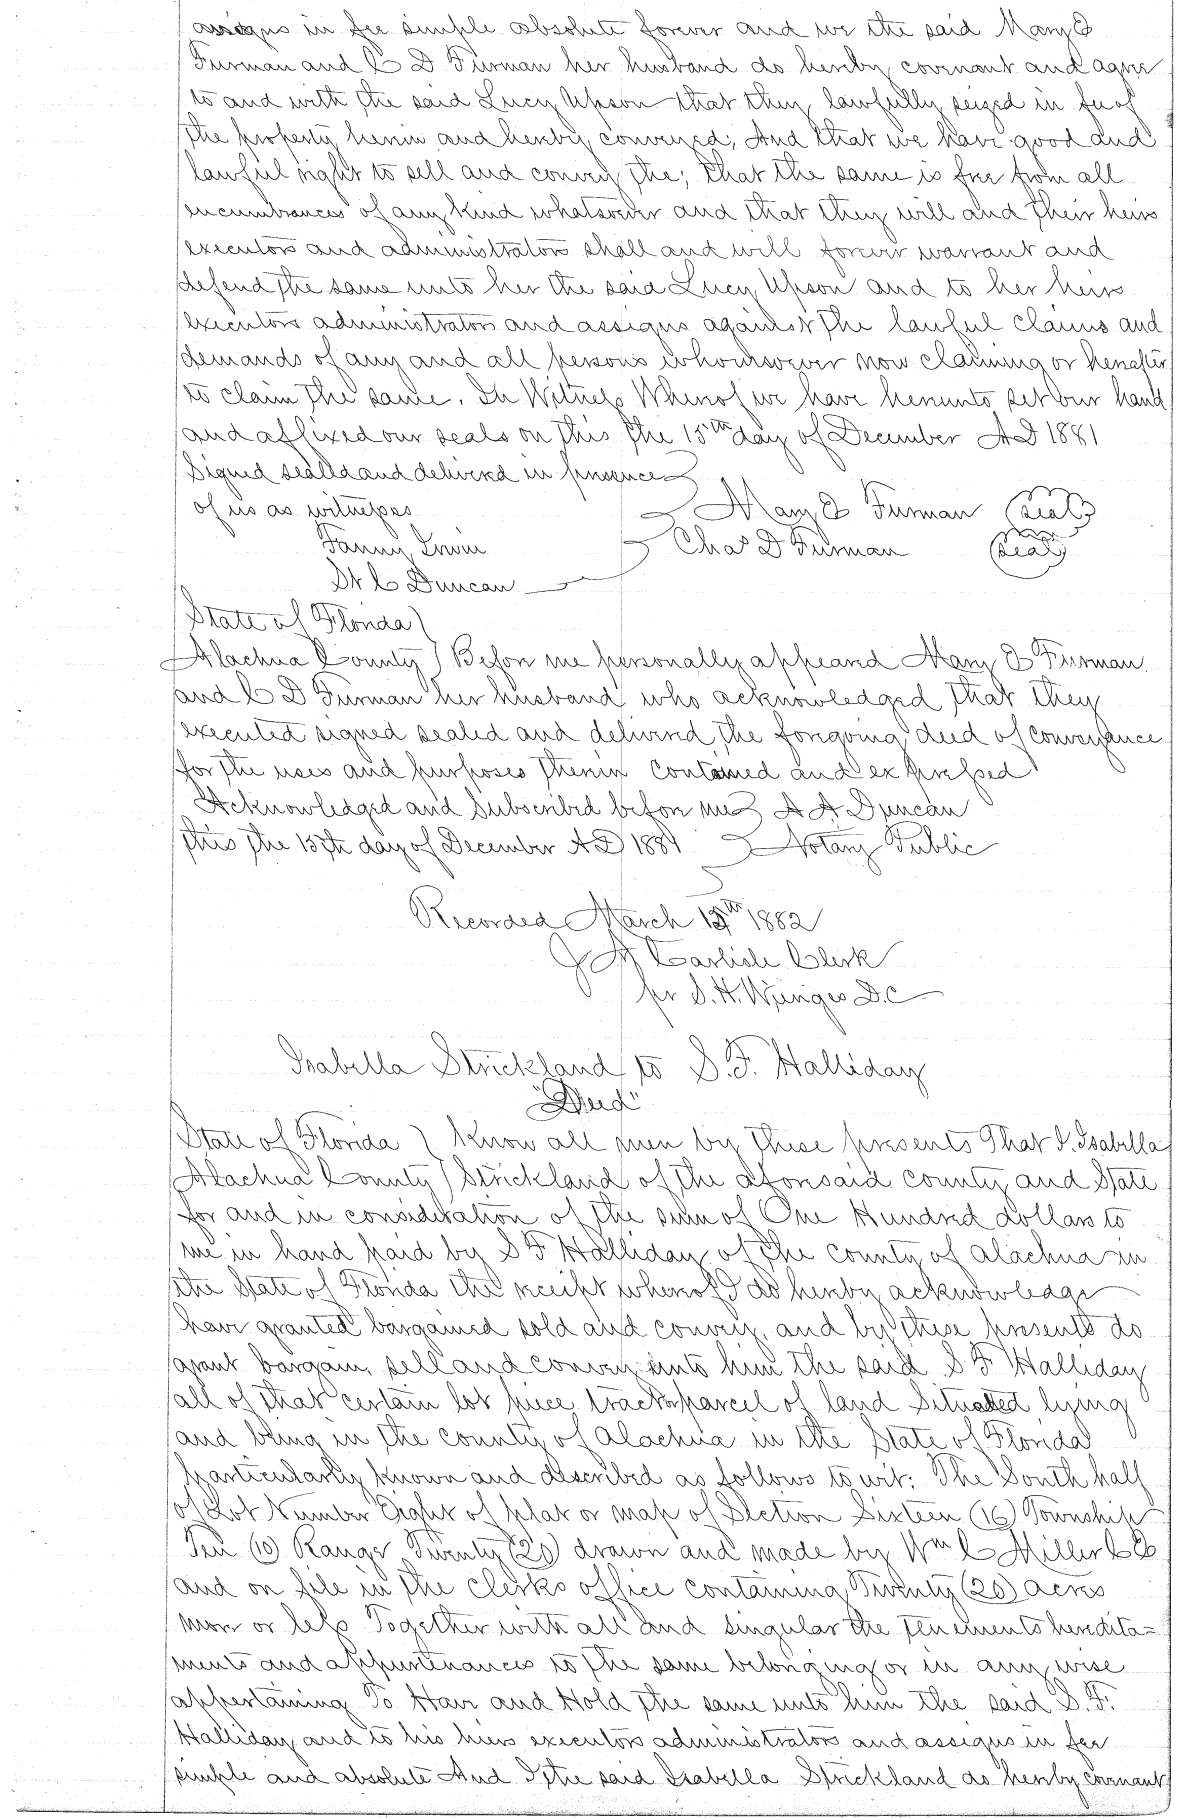 assigns in fee simple absolute forever and we the said Mary E
Furman and C D Furman her husband do hereby covenant and agree
to and with the said Lucy Upson that they lawfully seized in fee of
the property herein and hereby conveyed; And that we have good and
lawful right to sell and convey the; that the same is free from all
encumbrances of any kind whatsoever and that they will and their heirs
executors and administrators shall and will forever warrant and
defend the same unto her the said Lucy Upson and to her heirs
executors administrators and assigns against the lawful claims and
demands of any and all persons whomsoever now claiming or hereafter
to claim the same. In Witness Whereof we have hereunto set our hand
and affixed our seals on this the 15th day of December A D 1881
Signed sealed and delivered in presence
of us as witnesses
Mary E Furman (seal)
Fanny Irwin
Chas D Furman (seal)
St C Duncan
State of Florida )
Alachua County ) Before me personally appeared Mary E Furman
and C D Furman her husband who acknowledged that they
executed signed sealed and delivered the foregoing deed of conveyance
for the uses and purposes therein contained and expressed
Acknowledged and Subscribed before me A A Duncan
this the 15th day of December A D 1881 Notary Public
Recorded March th 1882
J A Carlisle Clerk
pr S. H. Wienges D.C
Isabella Strickland to S. F. Halliday
"Deed"
State of Florida ) Know all men by these presents That I. Isabella
Alachua County ) Strickland of the aforesaid county and State
for and in consideration of the sum of One Hundred dollars to
me in hand paid by S F Halliday of the county of Alachua in
the State of Florida the receipt whereof I do hereby acknowledge
have granted bargained sold and convey, and by these presents do
grant bargain, sell and convey unto him the said S F Halliday
all of that certain lot piece tract or parcel of land Situated lying
and being in the county of Alachua in the State of Florida
particularly known and described as follows to wit: The South half
of Lot Number Eight of plat or map of Section Sixteen (16) Township
Ten (10) Range Twenty (20) drawn and made by Wm C Miller C E
and on file in the clerks office containing Twenty (20) acres
more or less Together with all and singular the tenements heredita=
ments and appurtenances to the same belonging or in any wise
appertaining To Have and Hold the same unto him the said S. F.
Halliday and to his heirs executors administrators and assigns in fee
simple and absolute And I the said Isabella Strickland do hereby covenant